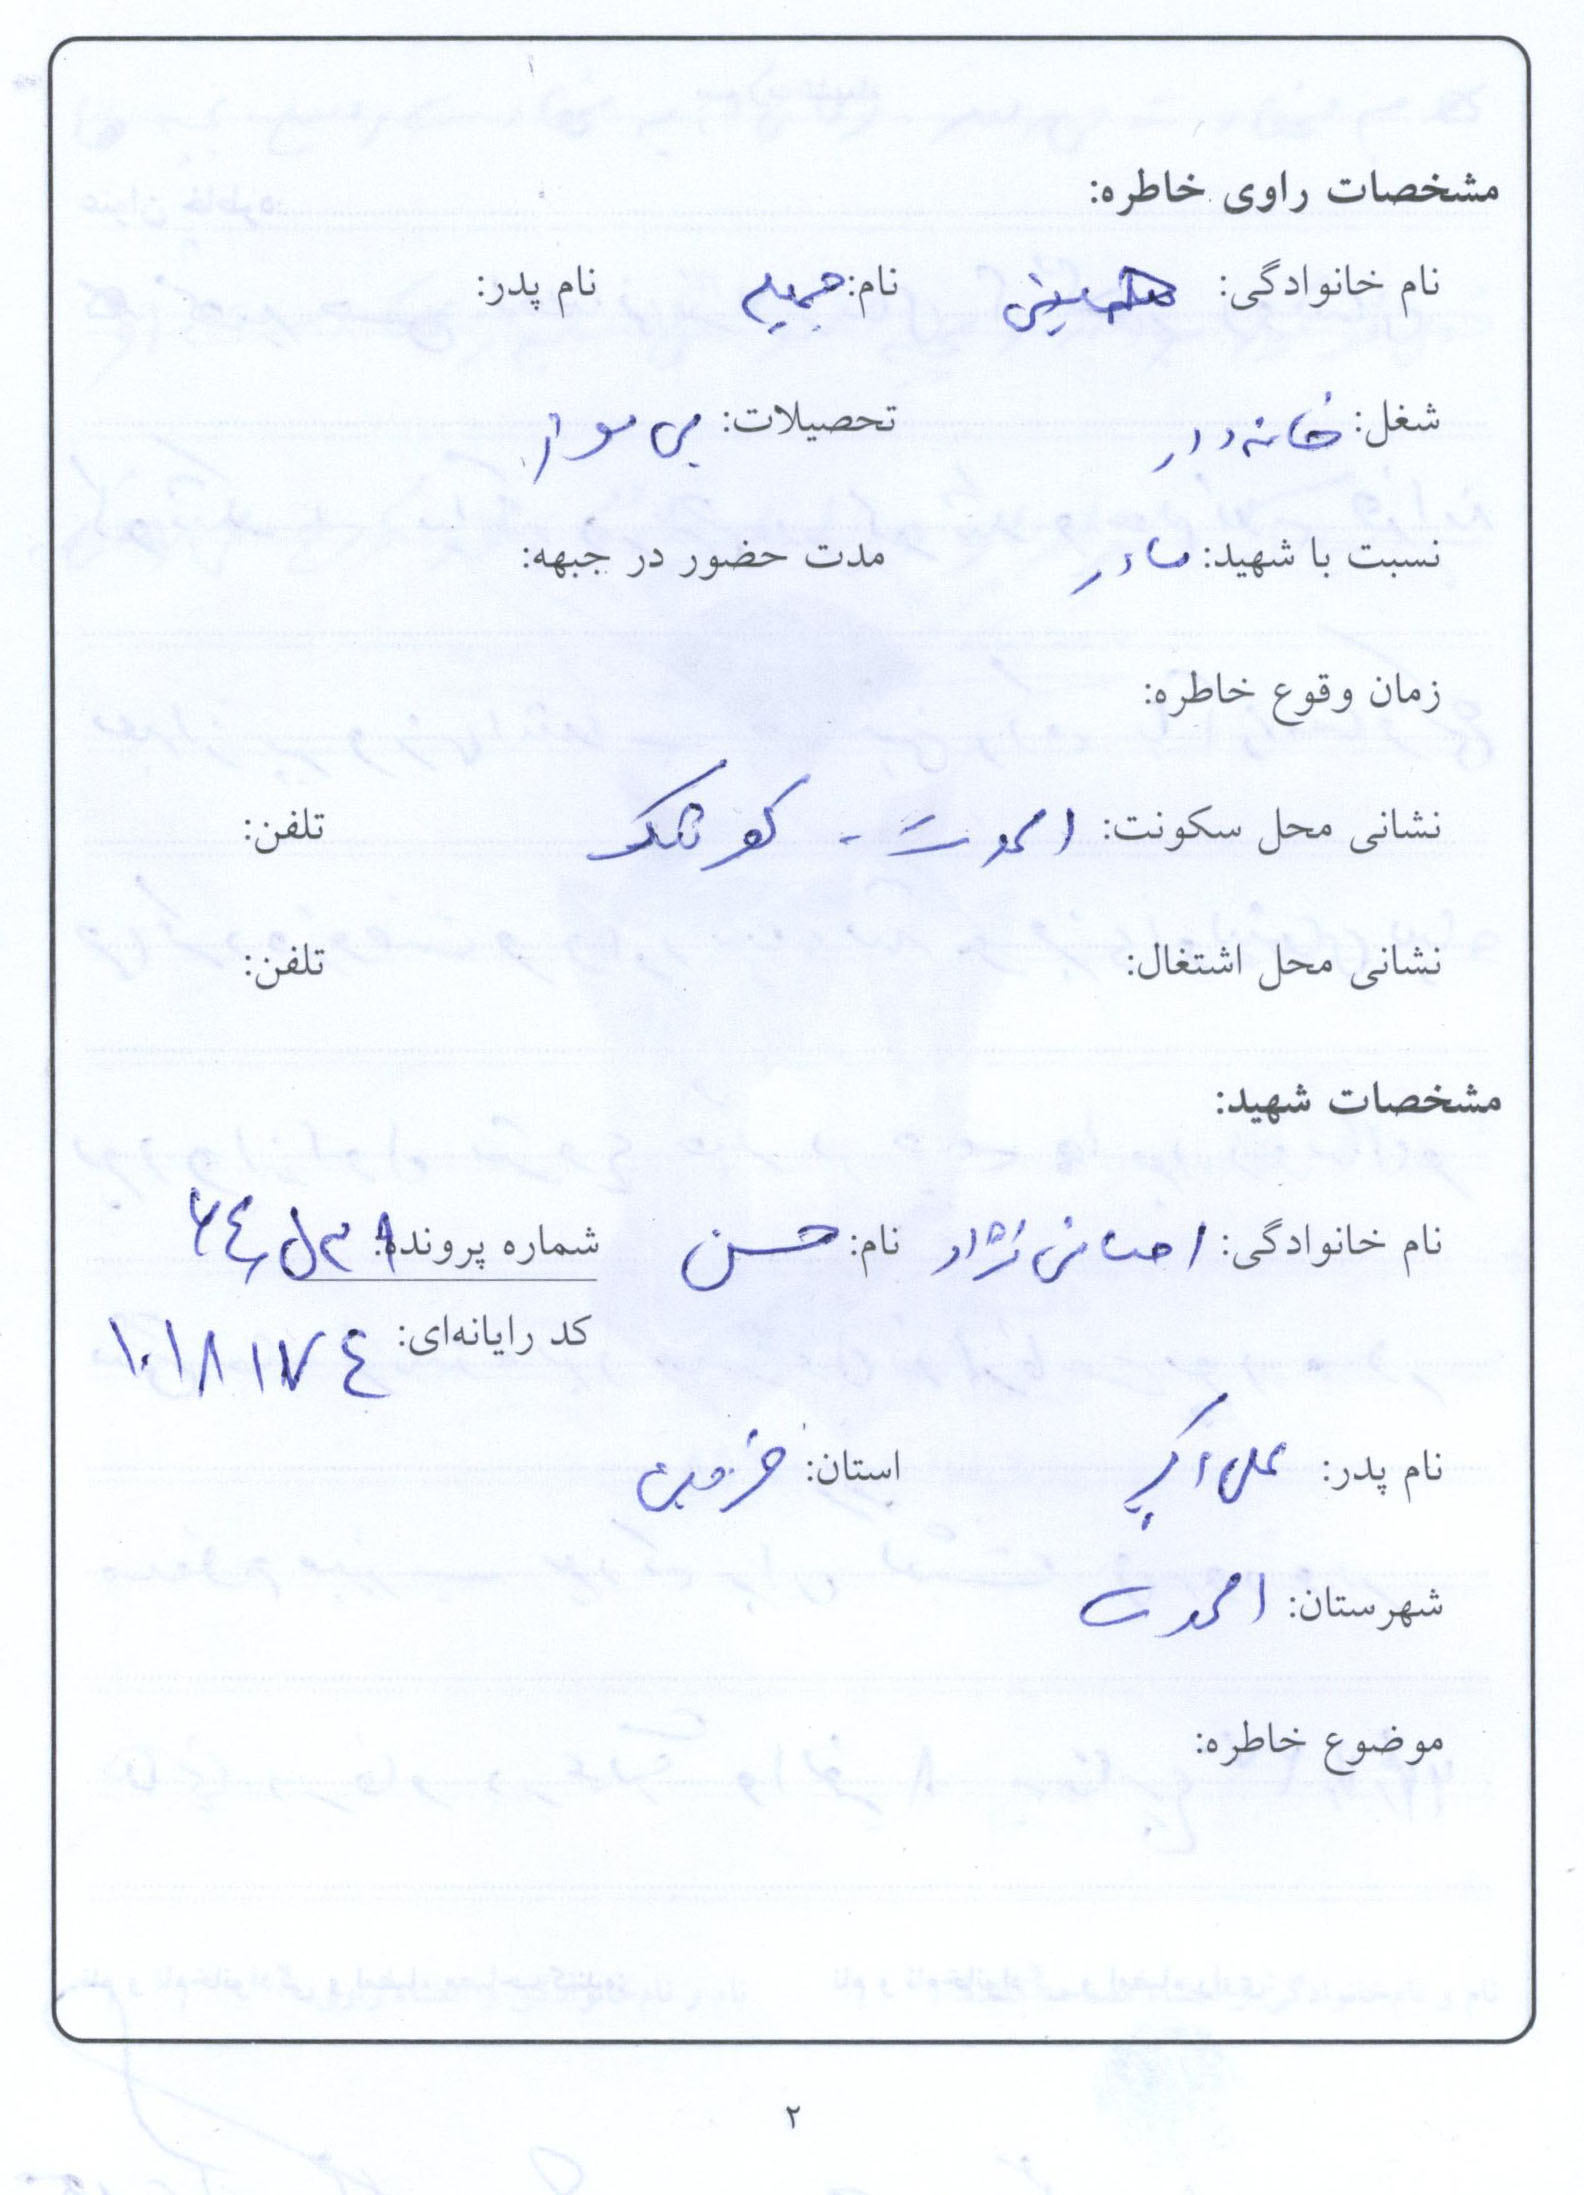 مشخصات راوی خاطره:
نام خانوادگی: نام: جمیله نام پدر:
شغل: خانه دار تحصیلات: بی سواد
نسبت با شهید: مادر مدت حضور در جبهه:
زمان وقوع خاطره:
نشانی محل سکونت: الموت - کوشک تلفن:
نشانی محل اشتغال: تلفن:
مشخصات شهید:
نام خانوادگی: احسانی نژاد نام: حسن شماره پرونده:
کد رایانه‌ای: ۱۰۱۸۱۷٤
نام پدر: علی اکبر استان: قزوین
شهرستان: الموت
موضوع خاطره:
۲